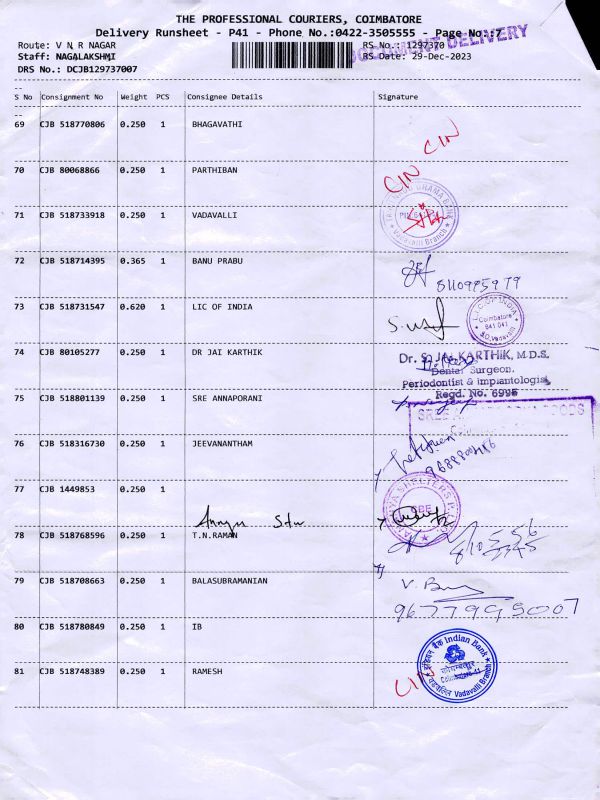 THE PROFESSIONAL COURIERS, COIMBATORE
Delivery Runsheet - P41 - Phone No.:0422-3505555 - Page No.:7
DOCUMENT DELIVERY
Route: V N R NAGAR RS No.: 1297370
Staff: NAGALAKSHMI RS Date: 29-Dec-2023
DRS No.: DCJB129737007
S No Consignment No Weight PCS Consignee Details Signature
69 CJB 518770806 0.250 1 BHAGAVATHI
CIN
70 CJB 80068866 0.250 1 PARTHIBAN
CIN
71 CJB 518733918 0.250 1 VADAVALLI
GRAMA BANK
Vadavalli Branch
72 CJB 518714395 0.365 1 BANU PRABU
73 CJB 518731547 0.620 1 LIC OF INDIA
L.I.C. OF INDIA
Coimbatore
641 041
S.O. Vadavalli
74 CJB 80105277 0.250 1 DR JAI KARTHIK
Dr. S. JAI KARTHIK, M.D.S.
Dental Surgeon.
Periodontist & Implantologist
Regd. No. 6996
75 CJB 518801139 0.250 1 SRE ANNAPORANI
76 CJB 518316730 0.250 1 JEEVANANTHAM
77 CJB 1449853 0.250 1
78 CJB 518768596 0.250 1 T.N.RAMAN
79 CJB 518708663 0.250 1 BALASUBRAMANIAN
80 CJB 518780849 0.250 1 IB
इंडियन बैंक Indian Bank
Vadavalli Branch
81 CJB 518748389 0.250 1 RAMESH
CIN